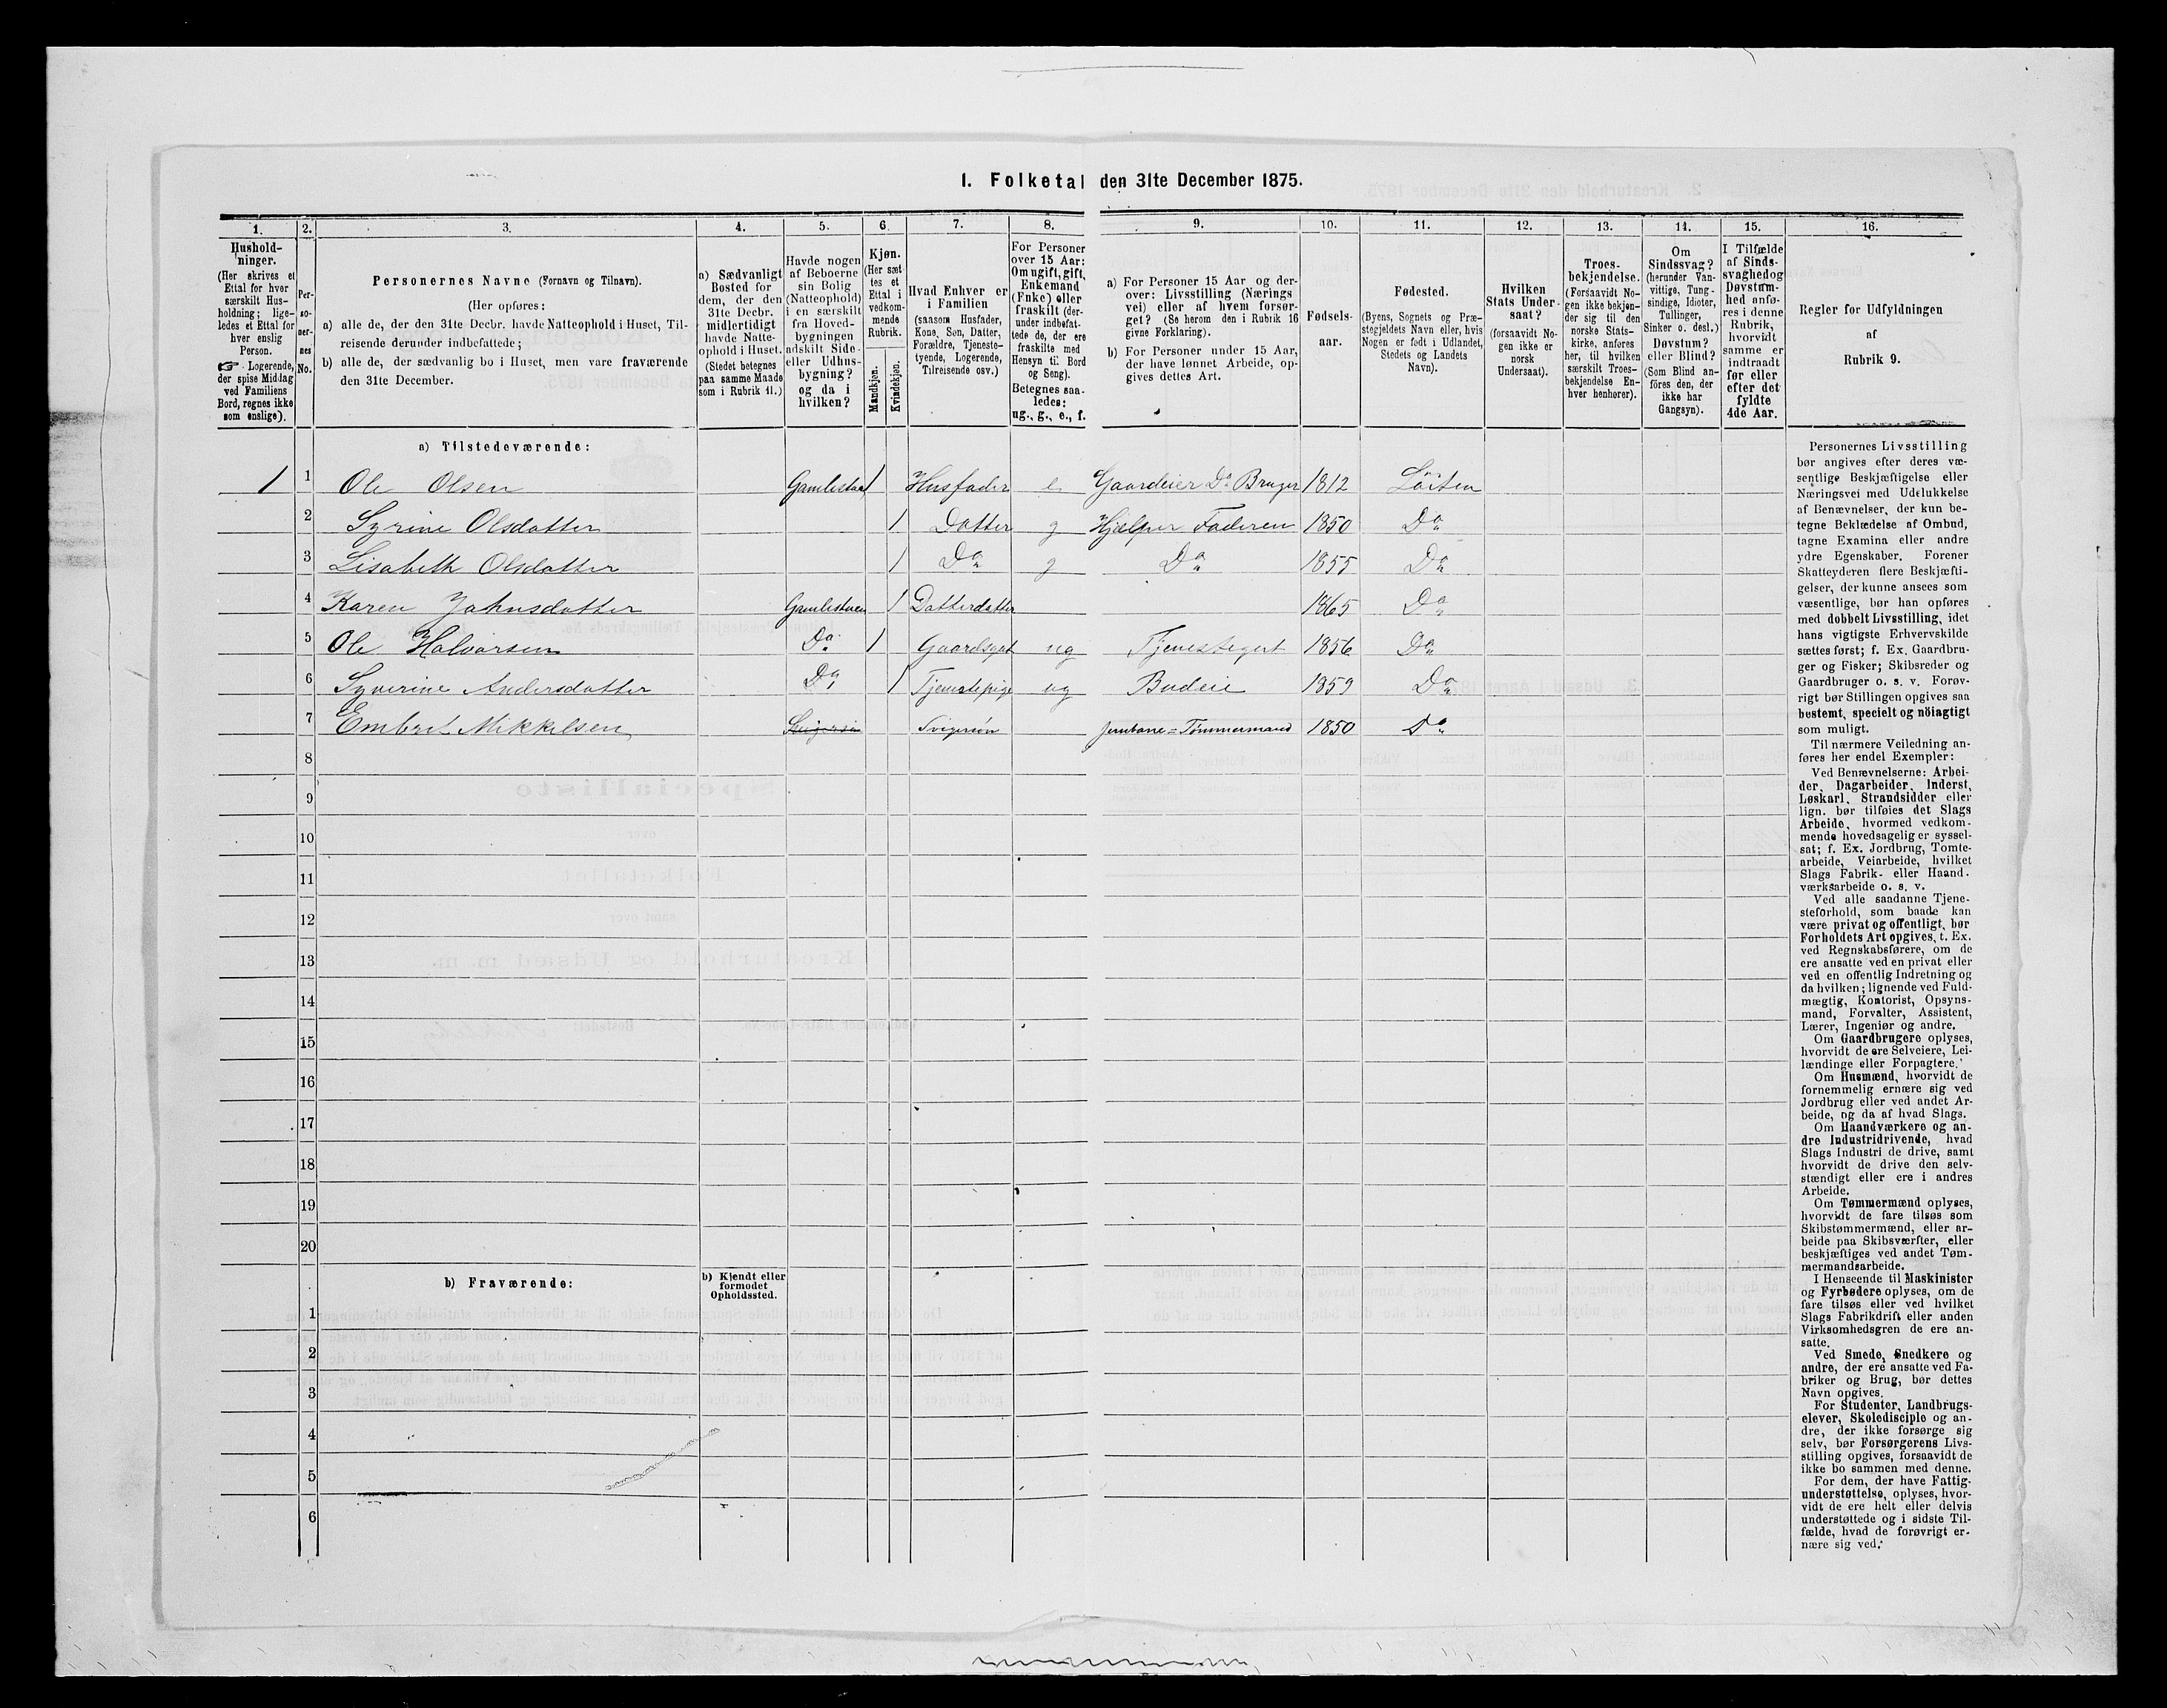 1. Folketal den 31te December 1875.
1. 2. 3. 4. 5. 6. 7. 8. 9. 10. 11. 12. 13. 14. 15. 16.
Hushold-
ninger.
(Her skrives et
Ettal for hver
særskilt Hus-
holdning; lige-
ledes et Ettal for
hver enslig
Person.
☞ Logerende,
der spise Middag
ved Familiens
Bord, regnes ikke
som enslige).
Per-
so-
ner-
nes
No.
Personernes Navne (Fornavn og Tilnavn).
(Her opføres:
a) alle de, der den 31te Decbr. havde Natteophold i Huset, Til-
reisende derunder indbefattede;
b) alle de, der sædvanlig bo i Huset, men vare fraværende
den 31te December.
a) Sædvanligt
Bosted for
dem, der den
31te Decbr.
midlertidigt
havde Natte-
ophold i Huset.
(Stedet betegnes
paa samme Maade
som i Rubrik 11.)
Havde nogen
af Beboerne
sin Bolig
(Natteophold)
i en særskilt
fra Hoved-
bygningen
adskilt Side-
eller Udhus-
bygning?
og da i
hvilken?
Kjøn.
(Her sæt-
tes et
Ettal i
vedkom-
mende
Rubrik.
Mandkjøn.
Kvindekjøn.
Hvad Enhver er
i Familien
(saasom Husfader,
Kone, Søn, Datter,
Forældre, Tjeneste-
tyende, Logerende,
Tilreisende osv.)
For Personer
over 15 Aar:
Om ugift, gift,
Enkemand
(Enke) eller
fraskilt (der-
under indbefat-
tede de, der ere
fraskilte med
Hensyn til Bord
og Seng).
Betegnes saa-
ledes:
ug., g., e., f.
a) For Personer 15 Aar og der-
over: Livsstilling (Nærings-
vei) eller af hvem forsør-
get? (Se herom den i Rubrik 16
givne Forklaring).
b) For Personer under 15 Aar,
der have lønnet Arbeide, op-
gives dettes Art.
Fødsels-
aar.
Fødested.
(Byens, Sognets og Præ-
stegjeldets Navn eller, hvis
Nogen er født i Udlandet,
Stedets og Landets
Navn).
Hvilken
Stats Under-
saat?
(forsaavidt No-
gen ikke er
norsk
Undersaat).
Troes-
bekjendelse.
(Forsaavidt No-
gen ikke bekjen-
der sig til den
norske Stats-
kirke, anføres
her, til hvilken
særskilt Troes-
bekjendelse En-
hver henhører).
Om
Sindssvag?
(herunder Van-
vittige, Tung-
sindige, Idioter,
Tullinger,
Sinker o. desl.)
Døvstum?
eller Blind?
(Som Blind an-
føres den, der
ikke har
Gangsyn).
I Tilfælde
af Sinds-
svaghed og
Døvstum-
hed anfø-
res i denne
Rubrik,
hvorvidt
samme er
indtraadt
før eller
efter det
fyldte
4de Aar.
Regler for Udfyldningen
af
Rubrik 9.
a) Tilstedeværende:
1 1 Ole Olsen 1 Husfader e Gaardeier Do Bruger 1812 Löiten
2 Syrine Olsdatter 1 Datter g Hjælper Faderen 1850 Do
3 Lisabeth Olsdatter 1 Do g Do 1855 Do
4 Karen Johnsdatter Gamlestuen 1 Datterdatter 1865 Do
5 Ole Halvorsen Do 1 Gaardsgut ug Tjenestegut 1856 Do
6 Syverine Andersdatter Do 1 Tjenestepige ug Budeie 1859 Do
7 Embret Mikkelsen Svigersøn Jernbane=Tømmermand 1850 Do
8
9
10
11
12
13
14
15
16
17
18
19
20
b) Fraværende:
b) Kjendt eller
formodet
Opholdssted.
1
2
3
4
5
6
Personernes Livsstilling
bør angives efter deres væ-
sentlige Beskjæftigelse eller
Næringsvei med Udelukkelse
af Benævnelser, der kun be-
tegne Beklædelse af Ombud,
tagne Examina eller andre
ydre Egenskaber. Forener
Skatteyderen flere Beskjæfti-
gelser, der kunne ansees som
væsentlige, bør han opføres
med dobbelt Livsstilling, idet
hans vigtigste Erhvervskilde
sættes først; f. Ex. Gaardbru-
ger og Fisker; Skibsreder og
Gaardbruger o. s. v. Forøv-
rigt bør Stillingen opgives saa
bestemt, specielt og nöiagtigt
som muligt.
Til nærmere Veiledning an-
føres her endel Exempler:
Ved Benævnelserne: Arbei-
der, Dagarbeider, Inderst,
Løskarl, Strandsidder eller
lign. bør tilføies det Slags
Arbeide, hvormed vedkom-
mende hovedsagelig er syssel-
sat; f. Ex. Jordbrug, Tomte-
arbeide, Veiarbeide, hvilket
Slags Fabrik- eller Haand-
værksarbeide o. s. v.
Ved alle saadanne Tjene-
steforhold, som baade kan
være privat og offentligt, bør
Forholdets Art opgives, t. Ex.
ved Regnskabsførere, om de
ere ansatte ved en privat eller
ved en offentlig Indretning og
da hvilken; lignende ved Fuld-
mægtig, Kontorist, Opsyns-
mand, Forvalter, Assistent,
Lærer, Ingeniør og andre.
Om Gaardbrugere oplyses,
hvorvidt de ere Selveiere, Lei-
lændinge eller Forpagtere.
Om Husmænd, hvorvidt de
fornemmelig ernære sig ved
Jordbrug eller ved andet Ar-
beide, og da af hvad Slags.
Om Haandværkere og an-
dre Industridrivende, hvad
Slags Industri de drive, samt
hvorvidt de drive den selv-
stændigt eller ere i andres
Arbeide.
Om Tømmermænd oplyses,
hvorvidt de fare tilsøs som
Skibstømmermænd, eller ar-
beide paa Skibsværfter, eller
beskjæftiges ved andet Tøm-
mermandsarbeide.
I Henseende til Maskinister
og Fyrbødere oplyses, om de
fare tilsøs eller ved hvilket
Slags Fabrikdrift eller anden
Virksomhedsgren de ere an-
satte.
Ved Smede, Snedkere og
andre, der ere ansatte ved Fa-
briker og Brug, bør dettes
Navn opgives.
For Studenter, Landbrugs-
elever, Skoledisciple og an-
dre, der ikke forsørge sig
selv, bør Forsørgerens Livs-
stilling opgives, forsaavidt de
ikke bo sammen med denne.
For dem, der have Fattig-
understøttelse, oplyses, hvor-
vidt de ere helt eller delvis
understøttede og i sidste Til-
fælde, hvad de forøvrigt er-
nære sig ved.